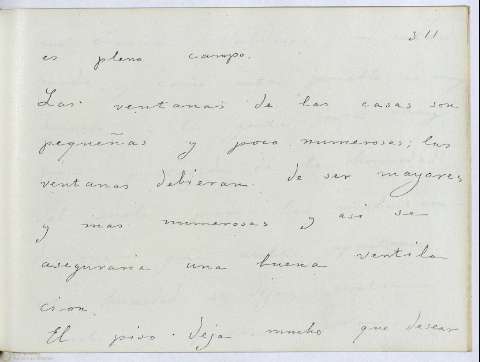 311
es pleno campo.
Las ventanas de las casas son
pequeñas y poco numerosas; las
ventanas debieran de ser mayores
y mas numerosas y asi se
aseguraria una buena ventila
cion.
El piso deja mucho que desear